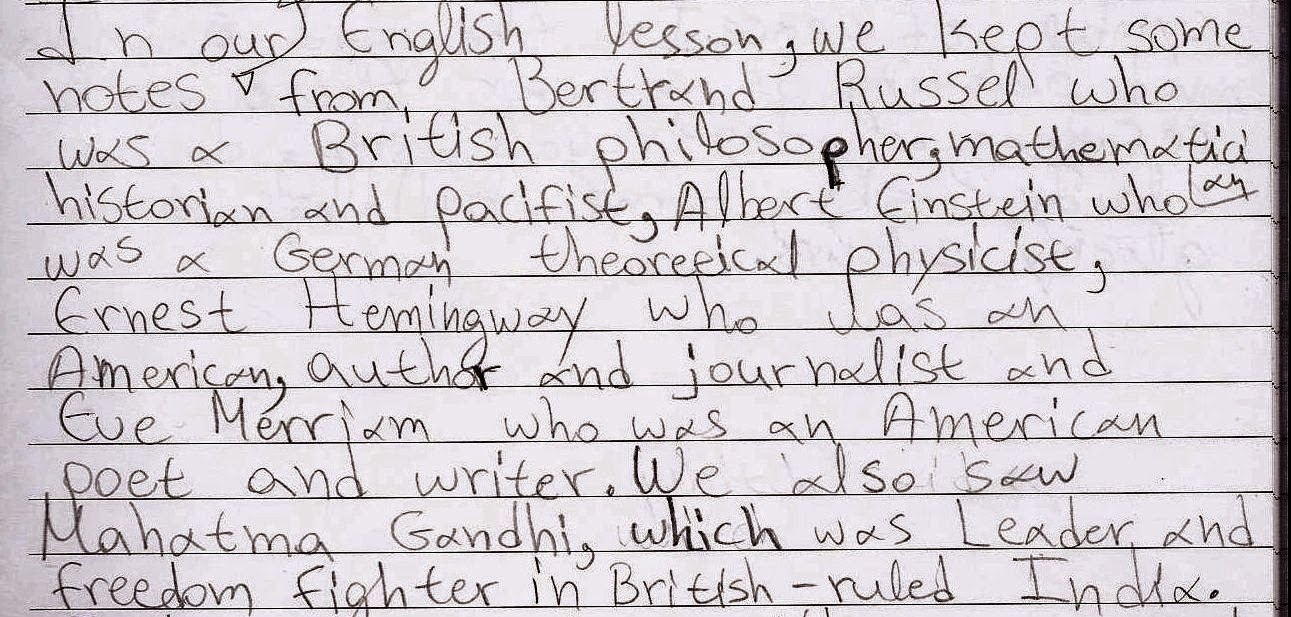 In our English lesson, we kept some
notes from, Bertrand Russel who
was a British philosopher, mathematician
historian and pacifist, Albert Einstein who
was a German theoretical physicist,
Ernest Hemingway who was an
American, author and journalist and
Eve Merriam who was an American
poet and writer. We also saw
Mahatma Gandhi, which was Leader and
freedom fighter in British-ruled India.